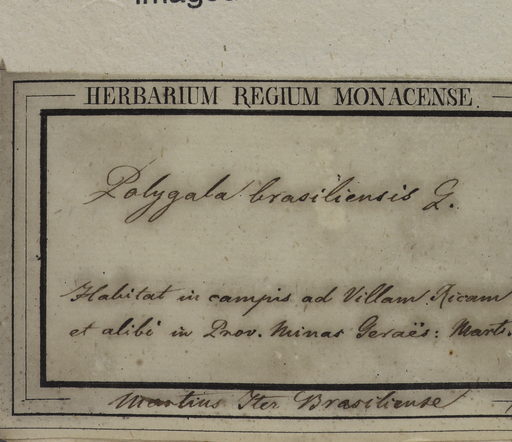 HERBARIUM REGIUM MONACENSE.
Polygala brasiliensis G.
Habitat in campis ad Villam Ricam
et alibi in Prov. Minas Geraës: Mart.
Martius Iter Brasiliense